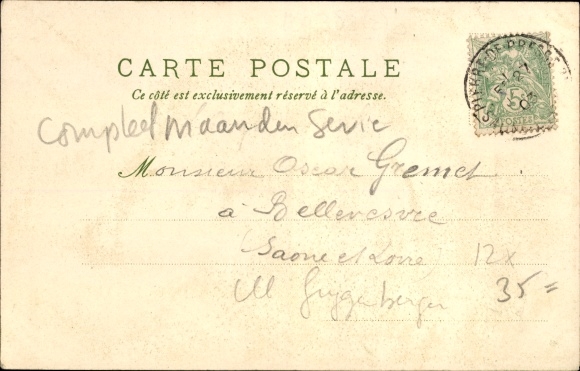 CARTE POSTALE
Ce côté est exclusivement réservé à l'adresse.
compleet maanden Serie
Monsieur Oscar Gremet
à Bellevesvre
Saone et Loire 12x
Guggenberger 35=
PIERRE-DE-BRESSE
5
POSTES